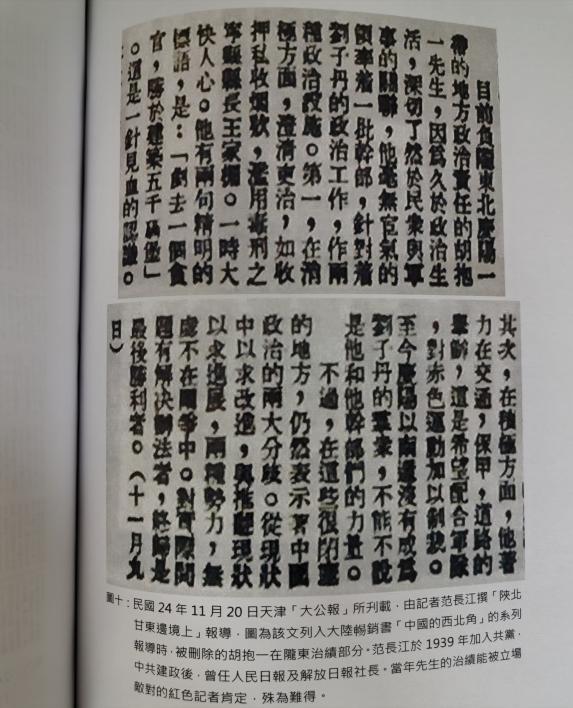 目前負隴東北慶陽一
帶的地方政治責任的胡抱
一先生，因爲久於政治生
活，深切了然於民衆與軍
事的關聯，他毫無宦氣的
領率着一批幹部，針對着
劉子丹的政治工作，作兩
種政治設施。第一，在消
極方面，澄清吏治，如收
押私收烟欵，濫用毒刑之
寧縣縣長王家。一時大
快人心。他有兩句精明的
標語，是：「剷去一個貪
官，勝於建築五千碉堡」
。這是一針見血的認識。
其次，在積極方面，他著
力在交通，保甲，道路的
舉辦，這是希望配合軍隊
，對赤色運動加以制裁。
至今慶陽以南還沒有成爲
劉子丹的羣衆，不能不說
是他和他幹部們的力量。
不過，在這些很閉塞
的地方，仍然表示著中國
政治的兩大分歧。從現狀
中以求改進，與推翻現狀
以求進展，兩種勢力，無
處不在鬥爭中。對實際問
題有解決辦法者，終歸是
最後勝利者。（十一月九
日）
圖十：民國 24 年 11 月 20 日天津「大公報」所刊載，由記者范長江撰「陝北
甘東邊境上」報導，圖為該文列入大陸暢銷書「中國的西北角」的系列
報導時，被刪除的胡抱一在隴東治績部分。范長江於 1939 年加入共黨，
中共建政後，曾任人民日報及解放日報社長。當年先生的治績能被立場
敵對的紅色記者肯定，殊為難得。